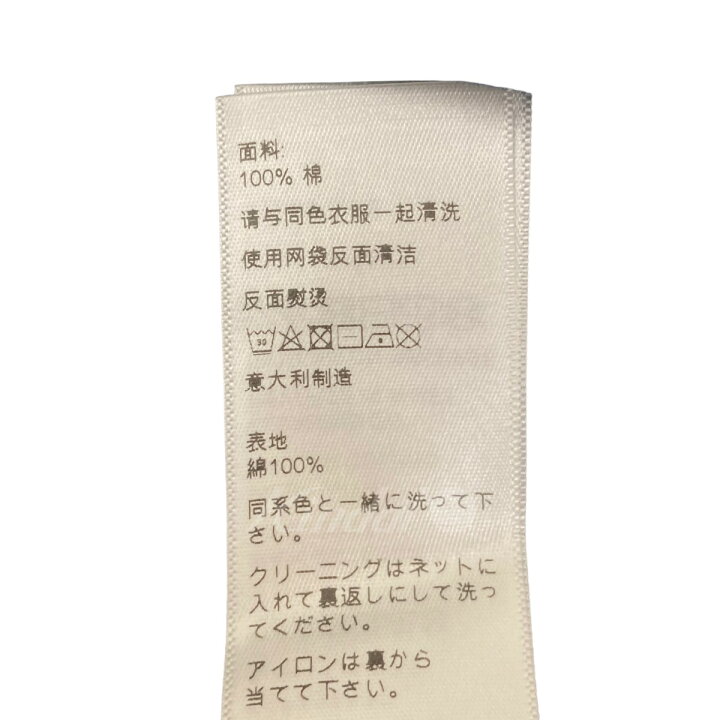 面料:
100% 棉
请与同色衣服一起清洗
使用网袋反面清洁
反面熨烫
30
意大利制造
表地
綿100%
同系色と一緒に洗って下
さい。
クリーニングはネットに
入れて裏返しにして洗っ
てください。
アイロンは裏から
当てて下さい。